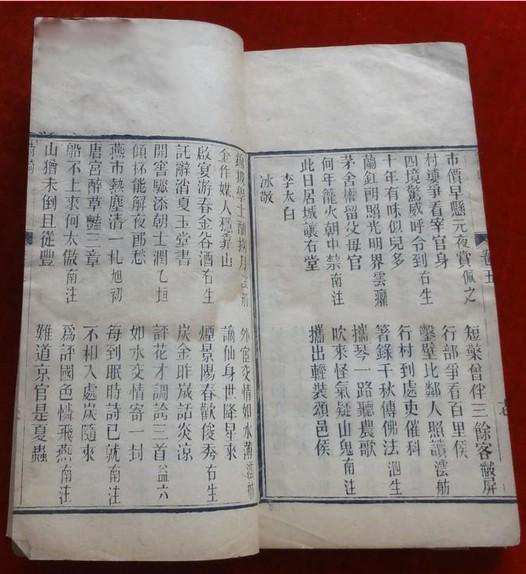 市價早懸元夜賞佩之　短檠曾伴三餘客皾屏
村壖爭看宰官身　行部爭看百里侯
四境驚威呼令到右生　鑿壁比鄰人照讀滋舫
十年有味似兒多　行村到處吏催科
蘭釭朗照光明界雲䑏　箸錄千秋傳佛法泗生
茅舍權留攵毋官　攜琴一路聽農歌
何年龍火朝中禁南注　吹來怪氣疑山鬼南注
此日居城讓右堂　攜出輕裝頌邑侯
李太白
冰敬
學士　月滋舫　外官交情如水薄滋舫
金作媒人穩靠山　謫仙身世降星來
啟宴游春金谷酒右生　煙景陽春歡俊秀右生
託辭消夏玉堂書　炭金昨歲話炎涼
開窖驟添朝士潤乙垣　評花才調論三首益六
傾杯能解夜郎愁　如水交情寄一封
燕市熱塵清一札旭初　每到眠時詩已就南注
唐宮醉草豔三章　不相入處炭隨來
船不上來何太傲南注　爲評國色憐飛燕南注
山猶未倒且從豐　難道京官是夏蟲
卷五